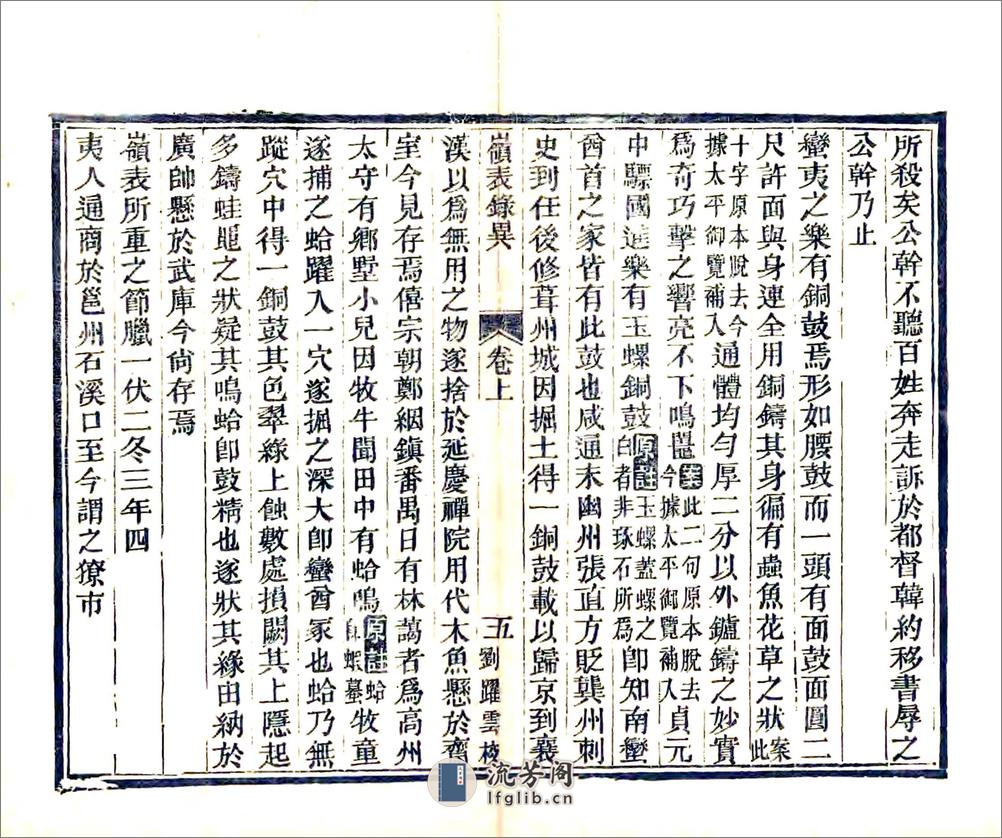 所殺矣公幹不聽百姓奔走訴於都督韓約移書辱之
公幹乃止
蠻夷之樂有銅鼓焉形如腰鼓而一頭有面鼓面圓二
尺許面與身連全用銅鑄其身徧有蟲魚花草之狀案此
十字原本脫去今據太平御覽補入通體均勻厚二分以外鑪鑄之妙實
爲奇巧擊之響亮不下鳴鼉案此二句原本脫去今據太平御覽補入貞元
中驃國進樂有玉螺銅鼓原註玉螺蓋螺之白者非琢石所爲卽知南蠻
酋首之家皆有此鼓也咸通末幽州張直方貶龔州刺
史到任後修葺州城因掘土得一銅鼓載以歸京到襄
嶺表錄異
卷上
五
劉躍雲校
漢以爲無用之物遂捨於延慶禪院用代木魚懸於齋
室今見存焉僖宗朝鄭絪鎮番禺日有林藹者爲高州
太守有鄉墅小兒因牧牛聞田中有蛤鳴原註蛤卽蝦蟇牧童
遂捕之蛤躍入一穴遂掘之深大卽蠻酋冢也蛤乃無
蹤穴中得一銅鼓其色翠綠上蝕數處損闕其上隱起
多鑄蛙黽之狀疑其鳴蛤卽鼓精也遂狀其緣由納於
廣帥懸於武庫今尙存焉
嶺表所重之節臘一伏二冬三年四
夷人通商於邕州石溪口至今謂之獠市
流芳阁
lfglib.cn